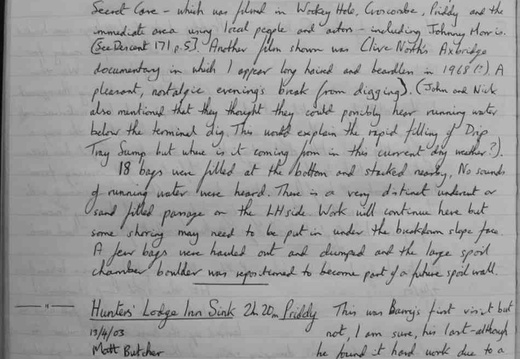 Secret Cave - which was filmed in Wookey Hole, Croscombe, Priddy and the
immediate area using local people and actors - including Johnny Morris.
(See Descent 171 p.5.) Another film shown was Clive North's Axbridge
documentary in which I appear long haired and beardless in 1968 (!!) A
pleasant, nostalgic evening's break from digging). (John and Nick
also mentioned that they thought they could possibly hear running water
below the terminal dig. This would explain the rapid filling of Drip
Tray Sump but where is it coming from in this current dry weather?).
18 bags were filled at the bottom and stacked nearby. No sounds
of running water were heard. There is a very distinct undercut or
sand filled passage on the LH side. Work will continue here but
some shoring may need to be put in under the breakdown slope face.
A few bags were hauled out and dumped and the large spoil
chamber boulder was repositioned to become part of a future spoil wall.
Hunters' Lodge Inn Sink 2h 20m Priddy This was Barry's first visit but
13/4/03 not, I am sure, his last - although
Matt Butcher he found it hard work due to a